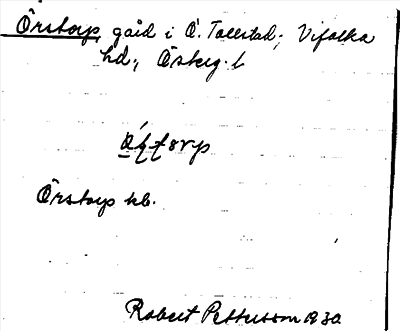 Örstorp, gård i Ö. Tollstad; Vifolka
hd., Österg. l
Örstorp kb.
Robert Pettersson 1930